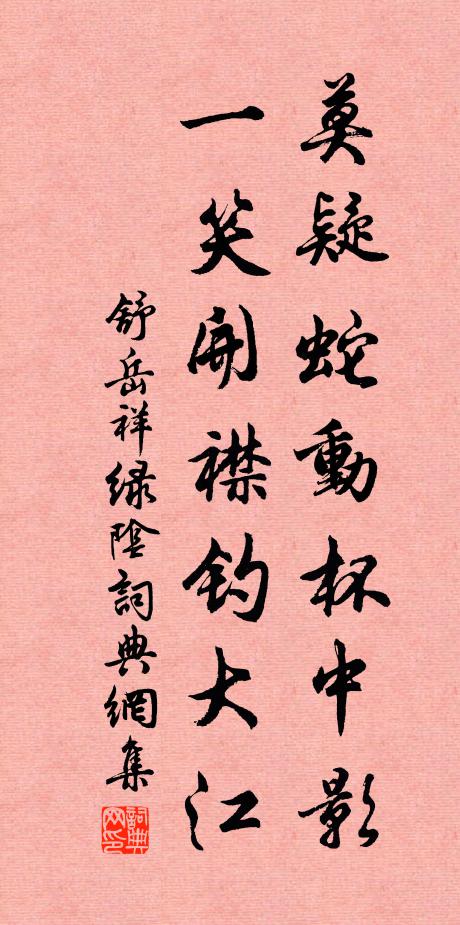 莫疑蛇動杯中影
一笑開襟釣大江
舒岳祥綠陰詞典網集
詞典网印